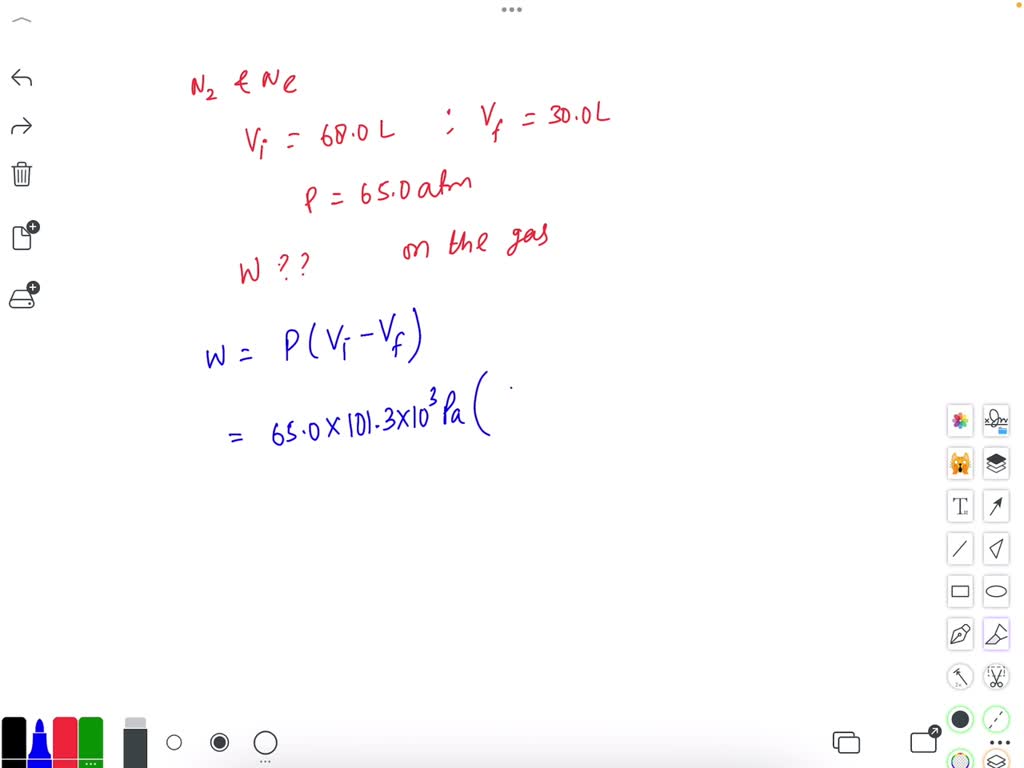 N₂ & Ne
Vᵢ = 68.0 L ; V_f = 30.0 L
P = 65.0 atm
W ?? on the gas
W = P(Vᵢ - V_f)
= 65.0 × 101.3 × 10³ Pa (